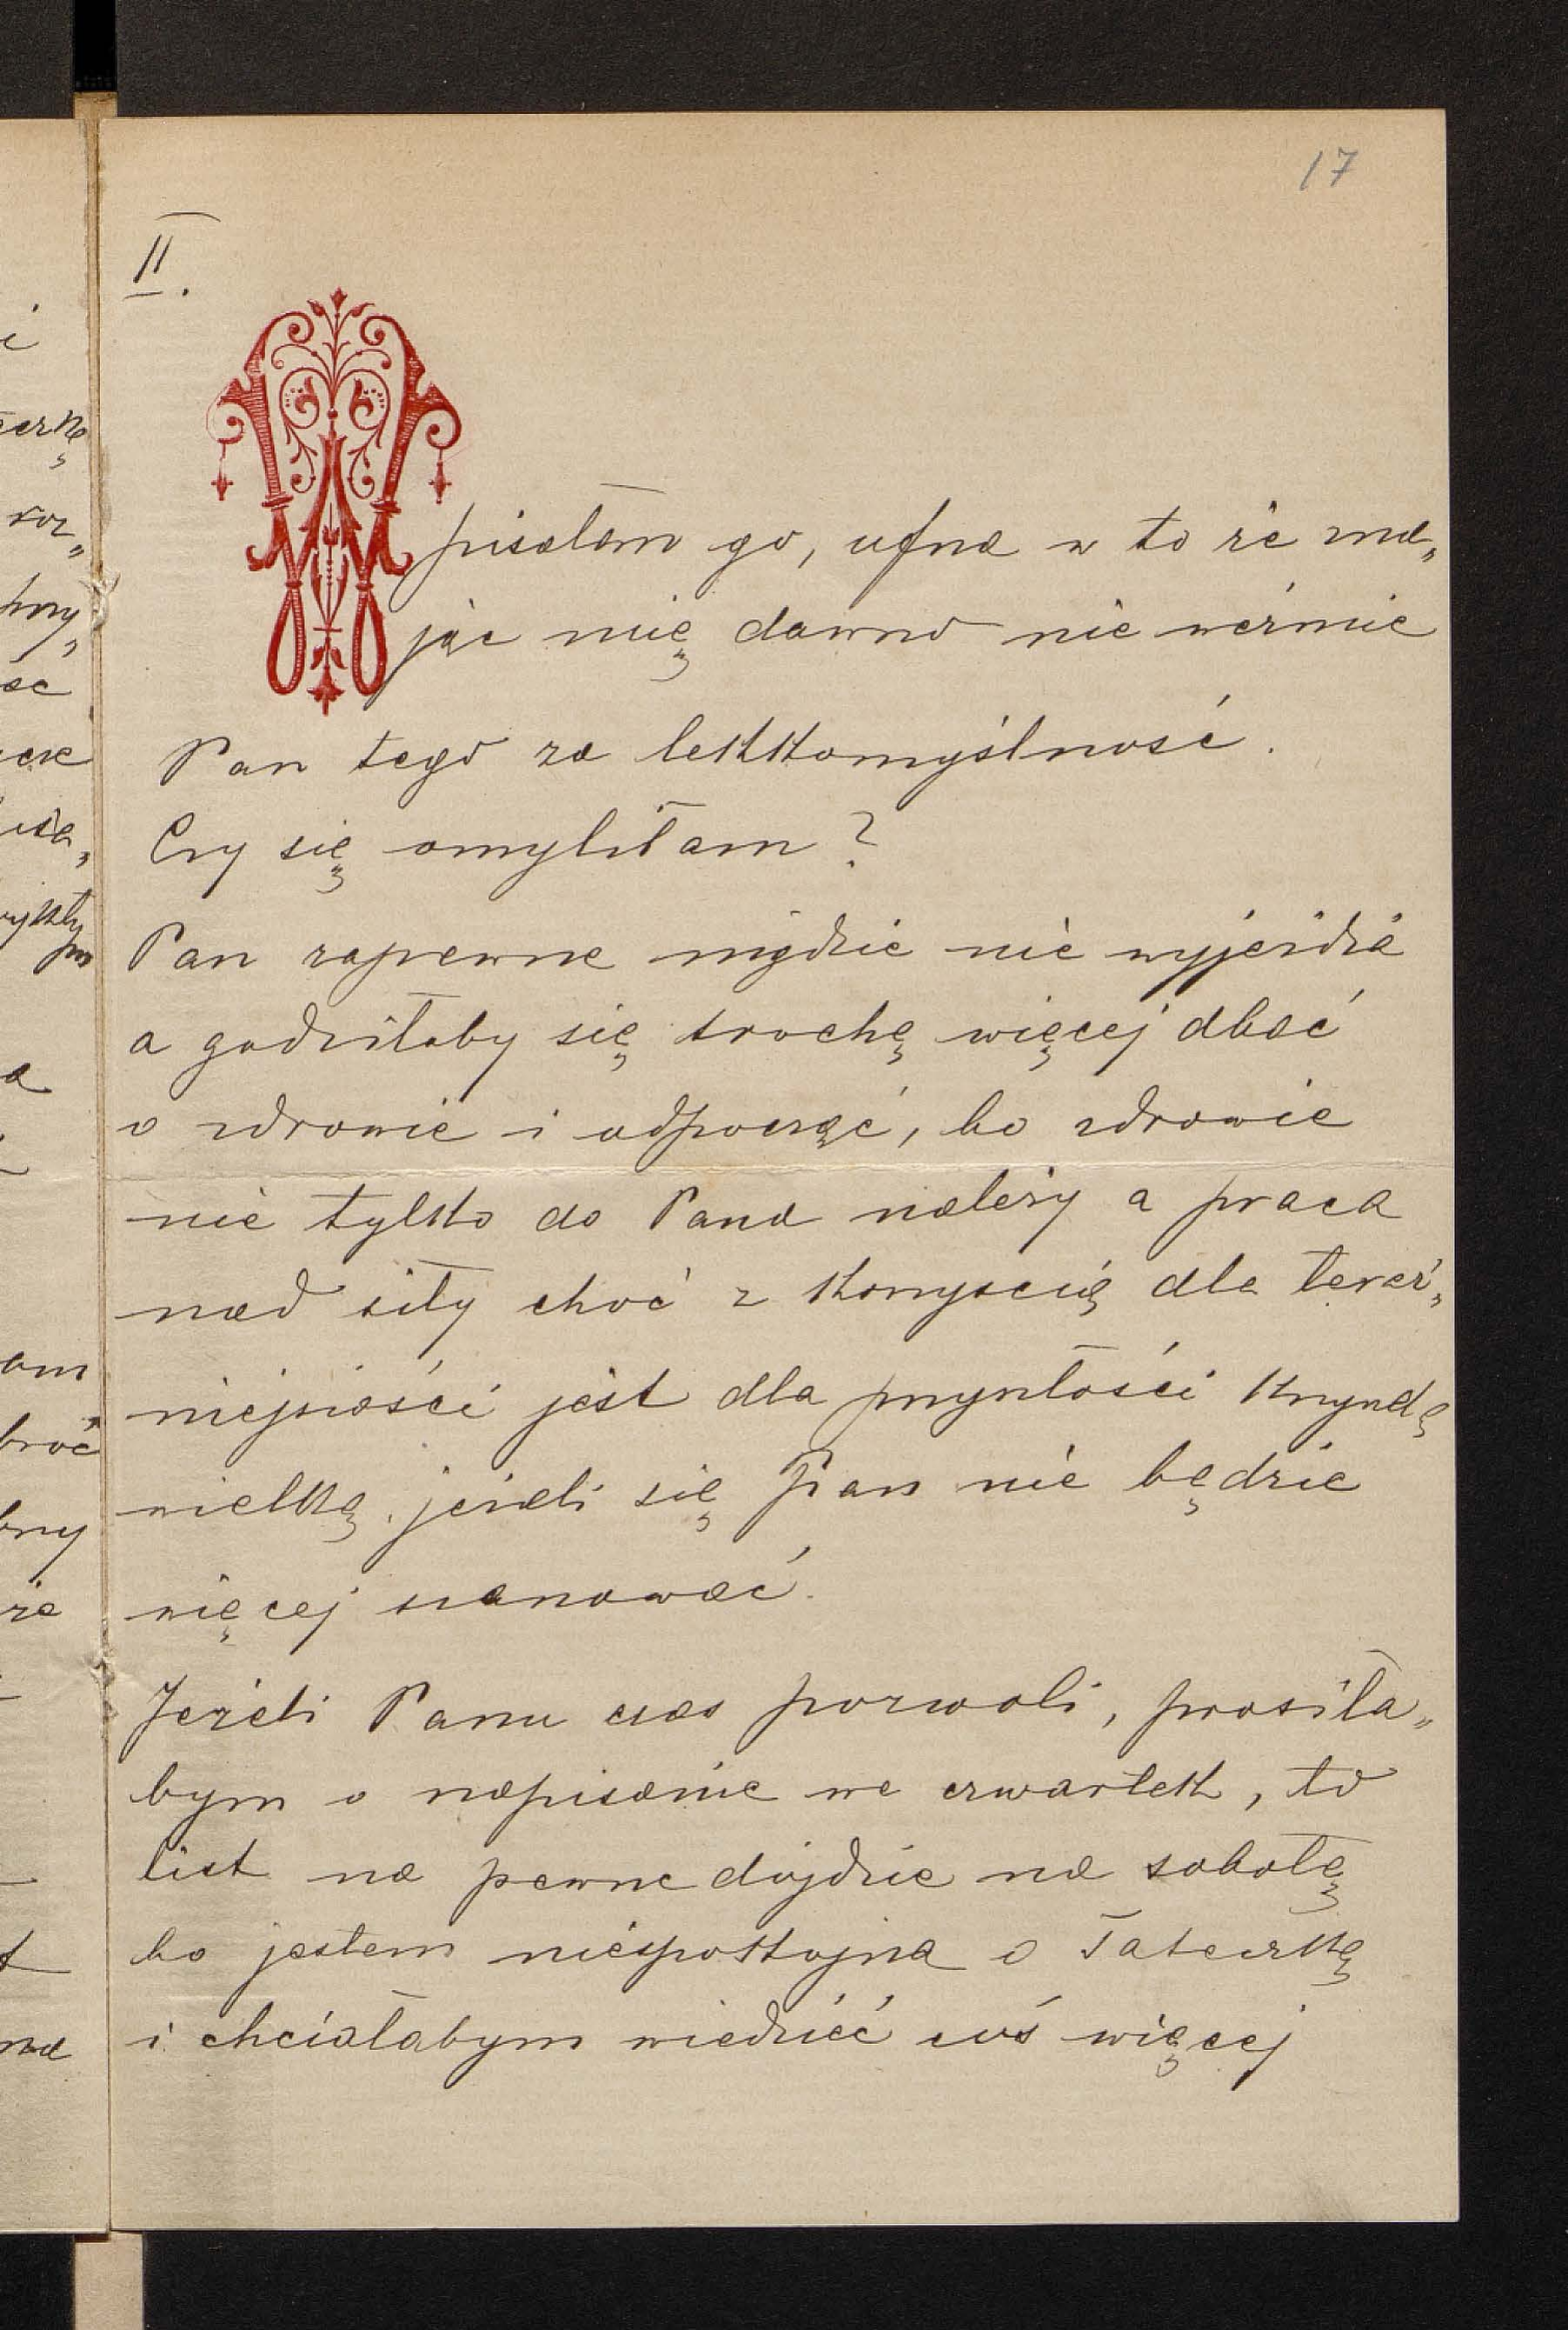 17
II.
pisałam go, ufna w to że zna„
jąc mię dawno nie weźmie
Pan tego za lekkomyślność.
Czy się omyliłam?
Pan zapewne nigdzie nie wyjeżdża
a godziłoby się trochę więcej dbać
o zdrowie i odpocząć, bo zdrowie
nie tylko do Pana należy a praca
nad siły choć z korzyscią dla teraź„
niejszości jest dla przyszłości krzywdą
wielką, jeżeli się Pan nie będzie
więcej szanować.
Jeżeli Panu czas pozwoli, prosiła„
bym o napisanie we czwartek, to
list na pewne dojdzie na sobotę
bo jestem niespokojna o Tateczkę
i chciałabym wiedzieć coś więcej